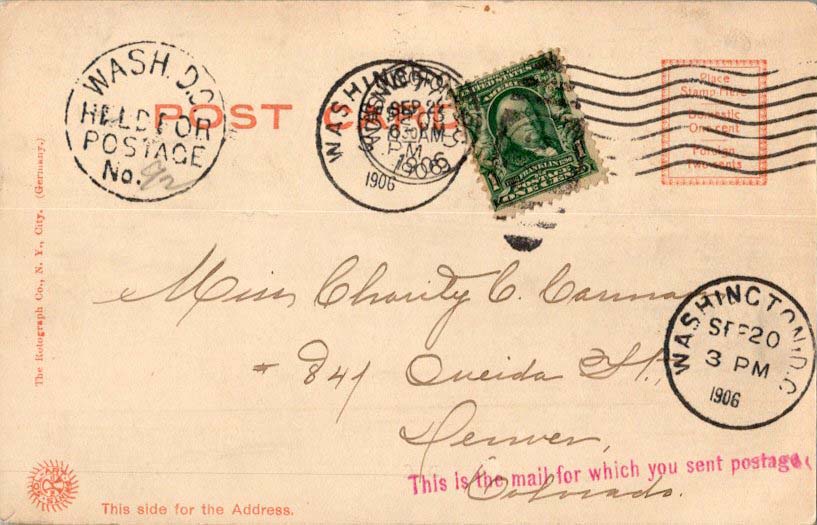 WASH. D.C.
HELD FOR
POSTAGE
No. 92
POST CARD
WASHINGTON, D.C.
SEP 2
6:30 AM
P M
1906
1906
FRANKLIN
1 POSTAGE 1
ONE CENT
Place
Stamp Here
Domestic
One cent
Foreign
Two cents
The Rotograph Co., N. Y., City. (Germany.)
Miss Charity C.
841 Oneida St.,
Denver,
Colorado.
WASHINGTON, D.C.
SEP 20
3 PM
1906
This is the mail for which you sent postage.
This side for the Address.